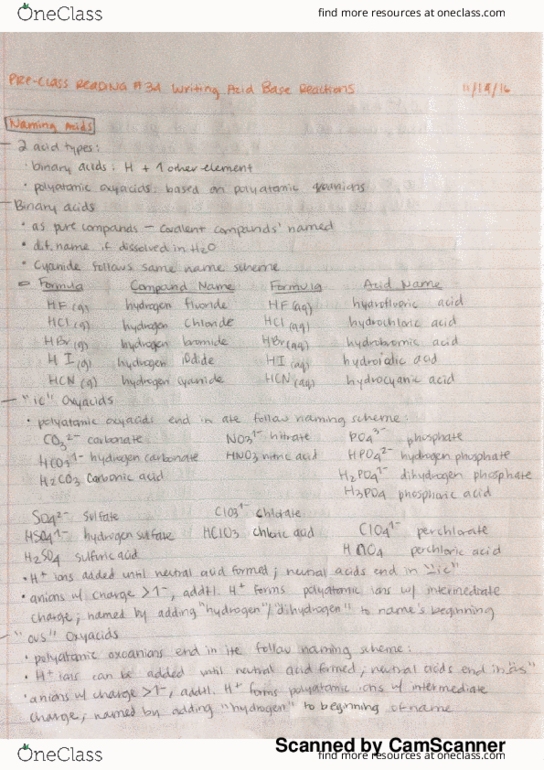 OneClass
find more resources at oneclass.com
PRE-CLASS READING #34 Writing Acid Base Reactions 11/19/16
Naming Acids
- 2 acid types:
• binary acids: H + 1 other element
• polyatomic oxyacids: based on polyatomic
- Binary acids
• as pure compands - covalent compands' named
• dif. name if dissolved in H2O
• Cyanide follows same name scheme
Formula Compound Name Formula Acid Name
HF (g) hydrogen fluoride HF (aq) hydrofluoric acid
HCl (g) hydrogen chloride HCl (aq) hydrochloric acid
HBr (g) hydrogen bromide HBr (aq) hydrobromic acid
HI (g) hydrogen iodide HI (aq) hydroiodic acid
HCN (g) hydrogen cyanide HCN (aq) hydrocyanic acid
- "ic" Oxyacids
• polyatomic oxyacids end in ate follow naming scheme:
CO3²⁻ carbonate NO3¹⁻ nitrate PO4³⁻ phosphate
HCO3¹⁻ hydrogen carbonate HNO3 nitric acid HPO4²⁻ hydrogen phosphate
H2CO3 Carbonic acid H2PO4¹⁻ dihydrogen phosphate
H3PO4 phosphoric acid
SO4²⁻ Sulfate ClO3¹⁻ chlorate
HSO4¹⁻ hydrogen sulfate HClO3 chloric acid ClO4¹⁻ perchlorate
H2SO4 sulfuric acid HClO4 perchloric acid
• H⁺ ions added until neutral acid formed; neutral acids end in "ic"
• anions w/ charge >1⁻, addtl. H⁺ forms polyatomic ions w/ intermediate
charge; named by adding "hydrogen"/"dihydrogen" to name's beginning
- "ous" Oxyacids
• polyatomic oxoanions end in ite follow naming scheme:
• H⁺ ions can be added until neutral acid formed; neutral acids end in "ous"
• anions w/ charge >1⁻, addtl. H⁺ forms polyatomic ions w/ intermediate
charge; named by adding "hydrogen" to beginning of name
Scanned by CamScanner
OneClass
find more resources at oneclass.com